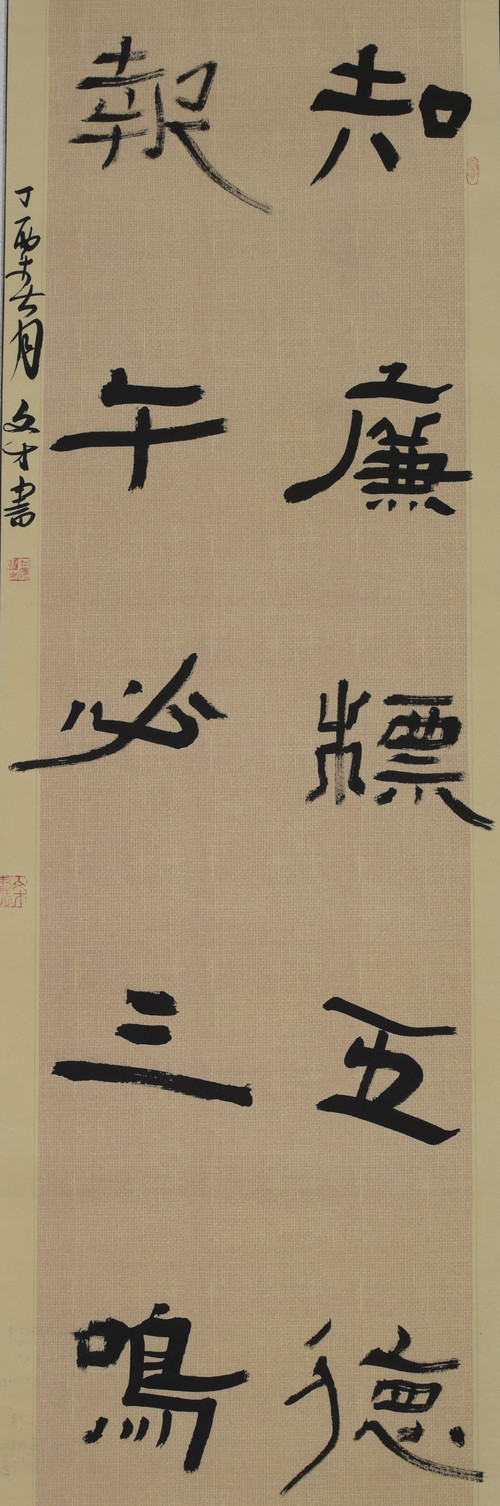 知廉標五德
報午必三鳴
丁酉六月文才書